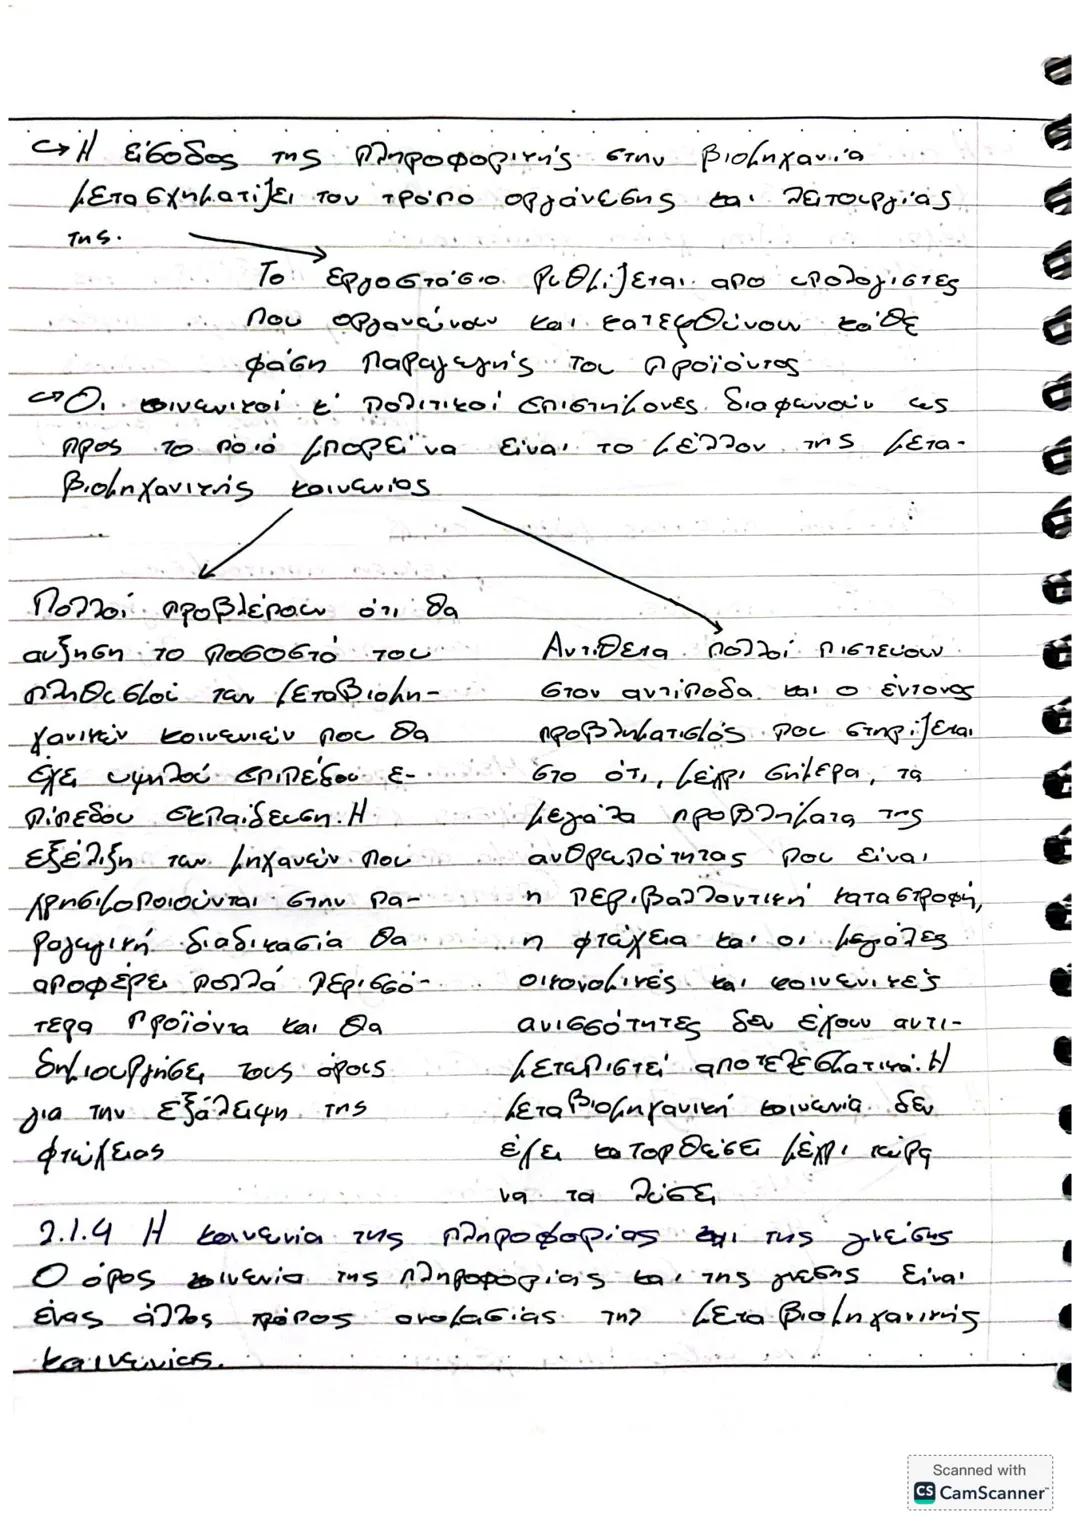 ↪ Η είσοδος της πληροφορικής στην βιομηχανία
μετασχηματίζει τον τρόπο οργάνωσης και λειτουργίας
της.
Το εργοστάσιο ρυθμίζεται από υπολογιστές
που οργανώνουν και κατευθύνουν κάθε
φάση παραγωγής του προϊόντος
↪ Οι κοινωνικοί κ' πολιτικοί επιστήμονες διαφωνούν ως
προς το ποιό μπορεί να είναι το μέλλον της μετα-
βιομηχανικής κοινωνίας
Πολλοί προβλέπουν ότι θα
αυξηση το ποσοστό του
πληθυσμού των μεταβιομη-
χανικών κοινωνιών που θα
έχει υψηλού επιπέδου ε-
πίπεδου εκπαίδευση. Η
εξέλιξη των μηχανών που
χρησιμοποιούνται στην πα-
ραγωγική διαδικασία θα
αποφέρει πολλά περισσό-
τερα προϊόντα και θα
δημιουργήσει τους όρους
για την εξάλειψη της
φτώχειας
Αντίθετα πολλοί πιστεύουν
στον αντίποδα και ο έντονος
προβληματισμός που στηρίζεται
στο ότι, μέχρι σήμερα, τα
μεγάλα προβλήματα της
ανθρωπότητας που είναι
η περιβαλλοντική καταστροφή,
η φτώχεια και οι μεγάλες
οικονομικές και κοινωνικές
ανισσότητες δεν έχουν αντι-
μετωπιστεί αποτελεσματικά. Η
μεταβιομηχανική κοινωνία δεν
έχει καταρθώσει μέχρι τώρα
να τα λύσει
2.1.4 Η κοινωνία της πληροφορίας και της γνώσης
Ο όρος κοινωνία της πληροφορίας και της γνώσης είναι
ένας άλλος τρόπος ονομασίας της μεταβιομηχανικής
κοινωνίας.
Scanned with
CS CamScanner